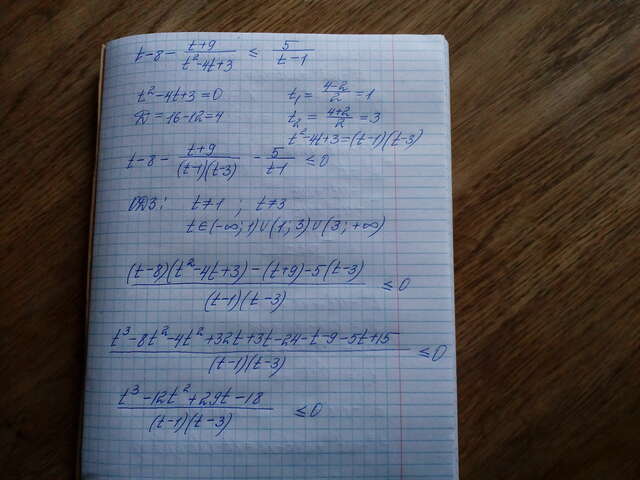 t-8 - (t+9)/(t²-4t+3) ≤ 5/(t-1)
t²-4t+3=0
t₁ = (4-2)/2 = 1
Д = 16-12=4
t₂ = (4+2)/2 = 3
t²-4t+3=(t-1)(t-3)
t-8 - (t+9)/((t-1)(t-3)) - 5/(t-1) ≤ 0
ОДЗ: t≠1 ; t≠3
t∈(-∞; 1)∪(1; 3)∪(3; +∞)
((t-8)(t²-4t+3)-(t+9)-5(t-3))/((t-1)(t-3)) ≤ 0
(t³-8t²-4t²+32t+3t-24-t-9-5t+15)/((t-1)(t-3)) ≤ 0
(t³-12t²+29t-18)/((t-1)(t-3)) ≤ 0